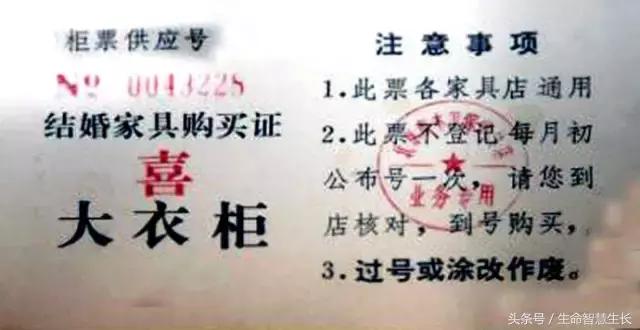 柜票供应号
No 0043228
结婚家具购买证
喜
大衣柜
注意事项
1.此票各家具店通用
2.此票不登记每月初
公布号一次，请您到
店核对，到号购买，
3.过号或涂改作废。
业务专用
头条号／生命智慧生长